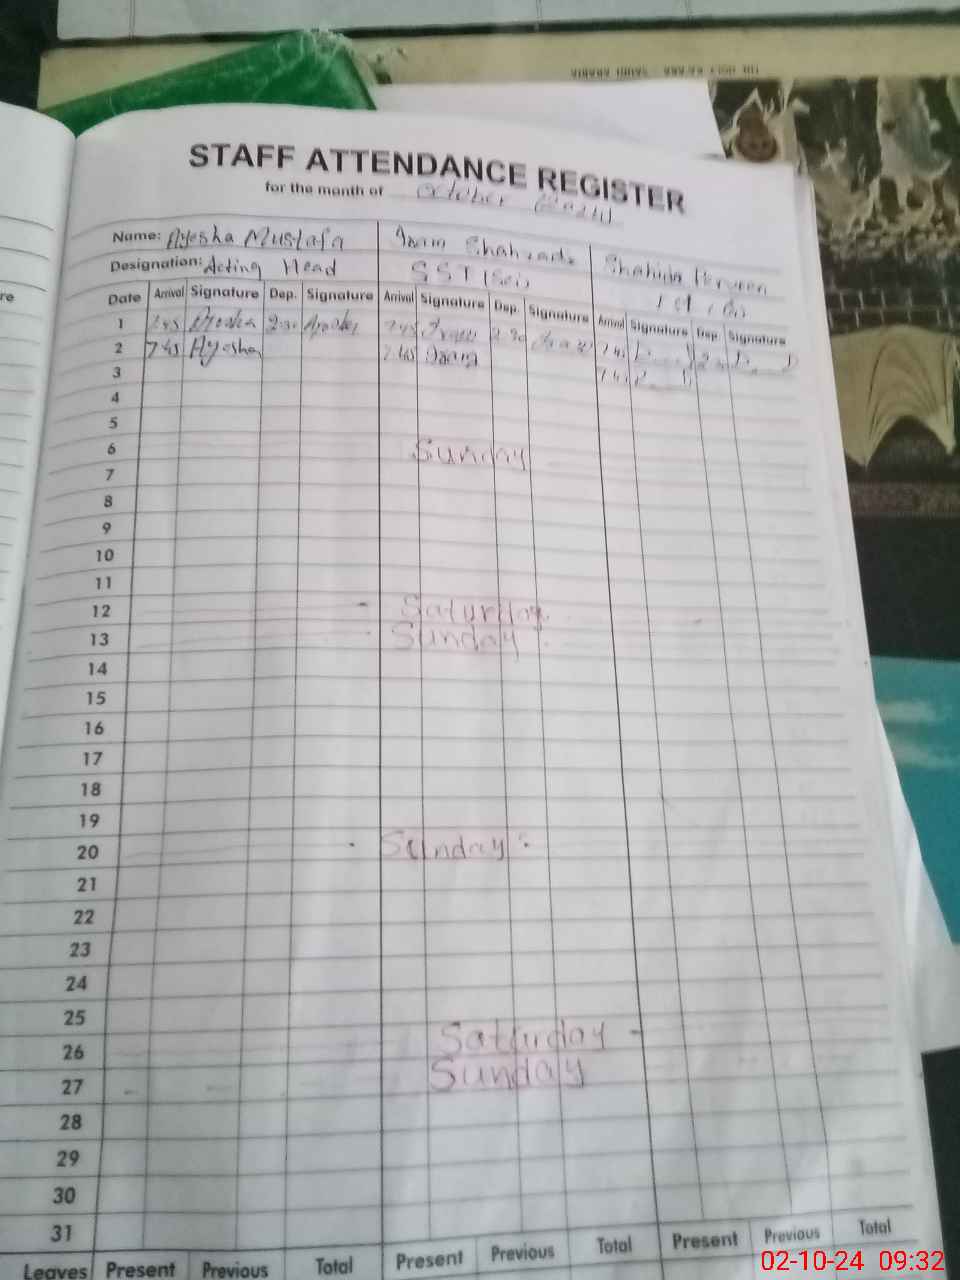 STAFF ATTENDANCE REGISTER
for the month of October (2024)
Name: Ayesha Mustafa Iram Shahzadi Shahida Perveen
Designation: Acting Head SST (Sci)
Date Arrival Signature Dep. Signature Arrival Signature Dep. Signature Arrival Signature Dep. Signature
1 7:45 Ayesha 2:30 Ayesha 7:45 Iram 2:30 Iram 7:45
2 7:45 Ayesha 7:45 Iram 7:45
3
4
5
6 Sunday
7
8
9
10
11
12 Saturday
13 Sunday
14
15
16
17
18
19
20 Sunday
21
22
23
24
25
26 Saturday
27 Sunday
28
29
30
31
Leaves Present Previous Total Present Previous Total Present Previous Total
02-10-24 09:32